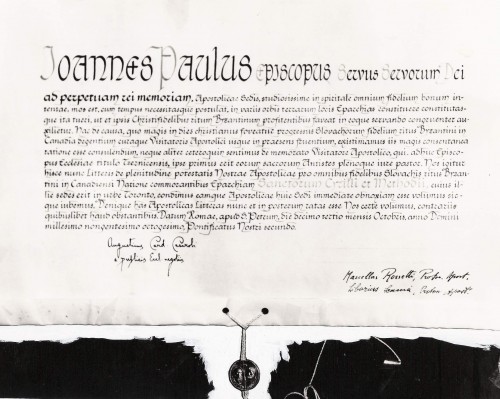 Ioannes Paulus Episcopus Servus Servorum Dei
ad perpetuam rei memoriam. Apostolicae Sedis, studiosissimo in spiritale omnium fidelium bonum in-
tentae, mos est, cum tempus necessitasque postulat, in variis orbis terrarum locis Eparchias constituere constitutas-
que ita tueri, ut et ipsis Christifidelibus ritum Byzantinum profitentibus faveat in eoque servando congruenter au-
xilietur. Hac de causa, quo magis in dies christianus foveatur progressus Slovachorum fidelium ritus Byzantini in
Canadia degentium eorumque Visitatoris Apostolici usque in praesens fruentium, existimamus iis magis consentanea
ratione esse consulendum, neque aliter ceteroquin sentimus de memorato Visitatore Apostolico, qui, adhuc Episco-
pus Ecclesiae titulo Tremicensis, ipse primus erit eorum sacrorum Antistes plenoque iure pastor. Nos igitur
hisce nunc Litteris de plenitudine potestatis Nostrae Apostolicae pro omnibus fidelibus Slovachis ritus Byzan-
tini in Canadensi Natione commorantibus Eparchiam Sanctorum Cyrilli et Methodii, cuius il-
lic sedes erit in urbe Toronto, condimus eamque Apostolicae huic Sedi immediate obnoxiam esse volumus sic-
que iubemus. Denique has Apostolicas Litteras nunc et in posterum ratas esse Nos certe volumus, contrariis
quibuslibet haud obstantibus. Datum Romae, apud S. Petrum, die decimo tertio mensis Octobris, anno Domini
millesimo nongentesimo octogesimo, Pontificatus Nostri secundo.
Augustinus Card
a publicis Eccl. negotiis
Marcellus Rossetti, Proton. Apost.
Proton. Apost.